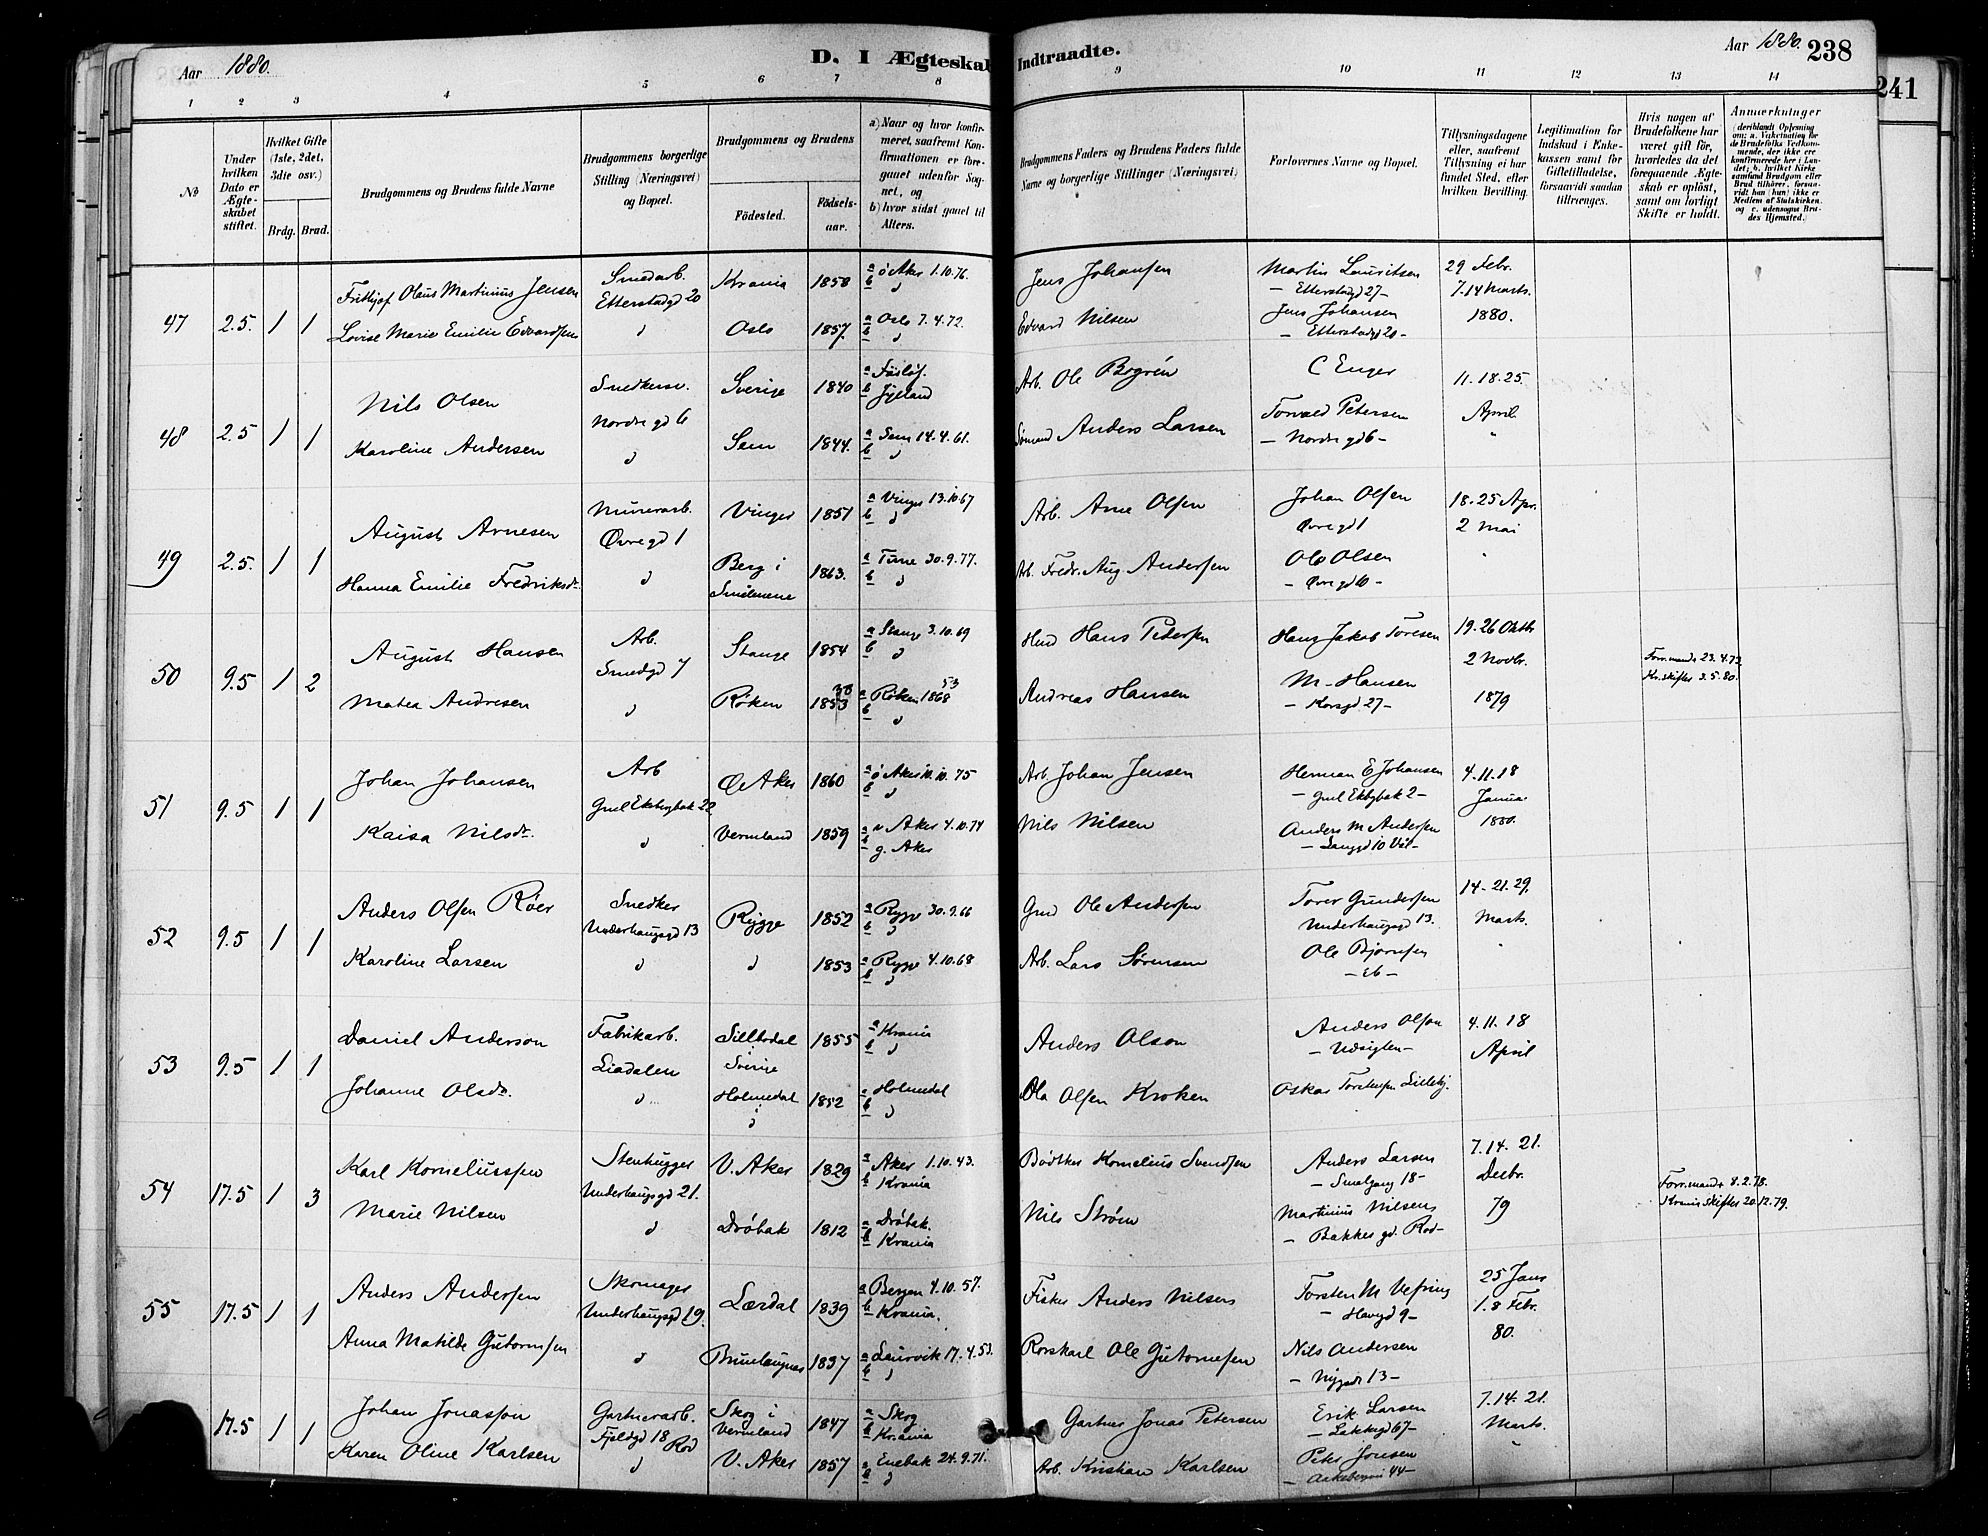 Aar 1880.
D. I Ægteskab Indtraadte.
Aar 1880. 238
241
1 2 3 4 5 6 7 8 9 10 11 12 13 14
No
Under hvilken Dato er Ægteskabet stiftet.
Hvilket Gifte (1ste, 2det, 3die osv.)
Brdg. Brud.
Brudgommens og Brudens fulde Navne
Brudgommens borgerlige Stilling (Næringsvei) og Bopæl.
Brudgommens og Brudens
Födested. Födselsaar.
a) Naar og hvor konfirmeret, saafremt Konfirmationen er foregaaet udenfor Sognet, og
b) hvor sidst gaaet til Alters.
Brudgommens Faders og Brudens Faders fulde Navne og borgerlige Stillinger (Næringsvei)
Forlovernes Navne og Bopæl.
Tillysningsdagene eller, saafremt Tillysning ei har fundet Sted, efter hvilken Bevilling.
Legitimation for Indskud i Enkekassen samt for Giftetilladelse, forsaavidt saadan tiltrænges.
Hvis nogen af Brudefolkene har været gift før, hvorledes da det foregaaende Ægteskab er opløst, samt om lovligt Skifte er holdt.
Anmærkninger (deriblandt Oplysning om: a. Vakcination for de Brudefolks Vedkommende, der ikke ere konfirmerede her i Landet; b. hvilket Kirkesamfund Brudgom eller Brud tilhörer, forsaavidt han (hun) ikke er Medlem af Statskirken, og c. udensogns Brudes Hjemsted.
47 2.5. 1 1 Frithjof Olaus Martinius Jensen Smedarb. Etterstadgd 20 Krania 1858 a ö Aker 1.10.76. b " Jens Johansen Martin Lauritsen – Etterstadgd 27 – 29 Febr. 7.14 Marts
Lovise Marie Emilie Edvardsen " Oslo 1857. a Oslo 7.4.72. b " Edvard Nilsen Jens Johansen – Etterstadgd 20 – 1880.
48 2.5 1 1 Nils Olsen Snedkersv. Nordre gd 6 Sverige 1840 a b Jylland Arb. Ole Bogrén C Enger 11.18.25. April
Karoline Andersen " Sem 1844. a Sem 14.4.61. b " Sömand Anders Larsen Torvald Petersen – Nordre gd 6 – "
49 2.5. 1 1 August Arnesen Murerarb. Øvre gd 1 Vinger 1851 a Vinger 13.10.67 b " Arb. Arne Olsen Johan Olsen Øvre gd 1 18.25 Apr. 2 Mai
Hanna Emilie Fredriksdr. " Berg i Smålenene 1863. a Tune 30.9.77. b " Arb. Fredr. Aug Andersen Ole Olsen – Øvre gd 10 – "
50 9.5 1 2 August Hansen Arb. Smedgd 7 Stange 1854 a Stange 3.10.69 b " Hmd Hans Pedersen Hans Jakob Toresen 19.26 Oktb 2 Novbr. Forr. mand + 23.4.73. Kr. skifter 3.5.80.
Matea Andresen " Røken 1853 38 a Røken 1868 53 b " Andreas Hansen M – Hansen – Korsgd 27 – 1879
51 9.5 1 1 Johan Johansen Arb Gml Ekebgbak 22 Ø Aker 1860 a ö Aker 10.10.75 b " Arb Johan Jensen Herman E Johansen – Gml Ekebgbak 2 – 4.11.18 Januar 1880.
Kaisa Nilsdr. " Vermland 1859 a v Aker 4.10.74 b g. Aker Nils Nilsen Anders M Andersen – Langgd 10 Vål –
52 9.5 1 1 Anders Olsen Röer Snedker Underhaugsgd 13 Rygge 1852 a Rygge 30.9.66 b " Gmd Ole Andersen Torer Gundersen Underhaugsgd 13. 14–21.29. Marts.
Karoline Larsen " " 1853 a Rygge 4.10.68 b " Arb. Lars Sørensen Ole Bjørnsen – ib – "
53 9.5 1 1 Daniel Anderson Fabrikarb. Liadalen Sillbodal i Sverige 1855 a Krania b " Anders Olson Anders Olsen – Udsigten – 4.11.18 April
Johanne Olsdr. " Holmedal i " 1852 a Holmedal b " Ola Olsen Kroken Oskar Torstensen Lilleby.
54 17.5 1 3 Karl Korneliussen Stenhugger Underhaugsgd 21. V. Aker 1829 a Aker 1.10.43. b Krania Bödtker Kornelius Svendsen Anders Larsen – Smalgang 18 – 7.14.21. Decbr. 79 Forr. mand + 8.2.78. Krania skifter 20.12.79.
Marie Nilsen " Dröbak 1812 a Dröbak. b Krania Nils Ström Martinius Nilsen – Bakkegd. Rod –
55 17.5 1 1 Anders Andersen Skomager Underhaugsgd 19. Lærdal 1839 a Bergen 4.10.57. b Krania. Fisker Anders Nilsen Torsten M Vefring – Havgd 9 – 25 Janr 1.8 Febr. 80.
Anna Matilde Gutormsen " Brunlaugnes 1837 a Laurvik 17.4.53. b " Rorskarl Ole Gutormsen Nils Andersen – Nygade 13 –
17.5 1 1 Johan Jonasson Gartnerarb. Fjeldgd 18 Rod Skog i Vermland 1847 a Skog b Krania Gartner Jonas Petersen Erik Larsen – Lakkegd 67 – 7.14.21. Marts.
Karen Oline Karlsen " V. Aker 1857 a Enebak 24.9.71. b " Arb. Kristian Karlsen Peter Jonsen – Aakebergvei 44 – "